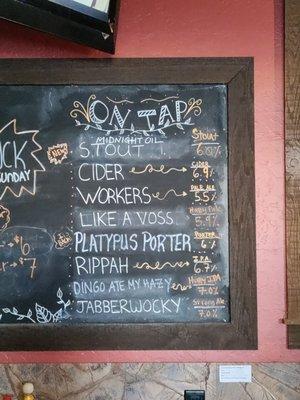 ON TAP
MIDNIGHT OIL
STOUT Stout 6.0%
CIDER CIDER 6.9%
WORKERS PALE ALE 5.5%
LIKE A VOSS 5.9%
PLATYPUS PORTER PORTER 6%
RIPPAH IPA 6.7%
DINGO ATE MY HAZY HAZY IPA 7.0%
JABBERWOCKY Strong Ale 7.0%
OCK
SUNDAY
NEW!
7